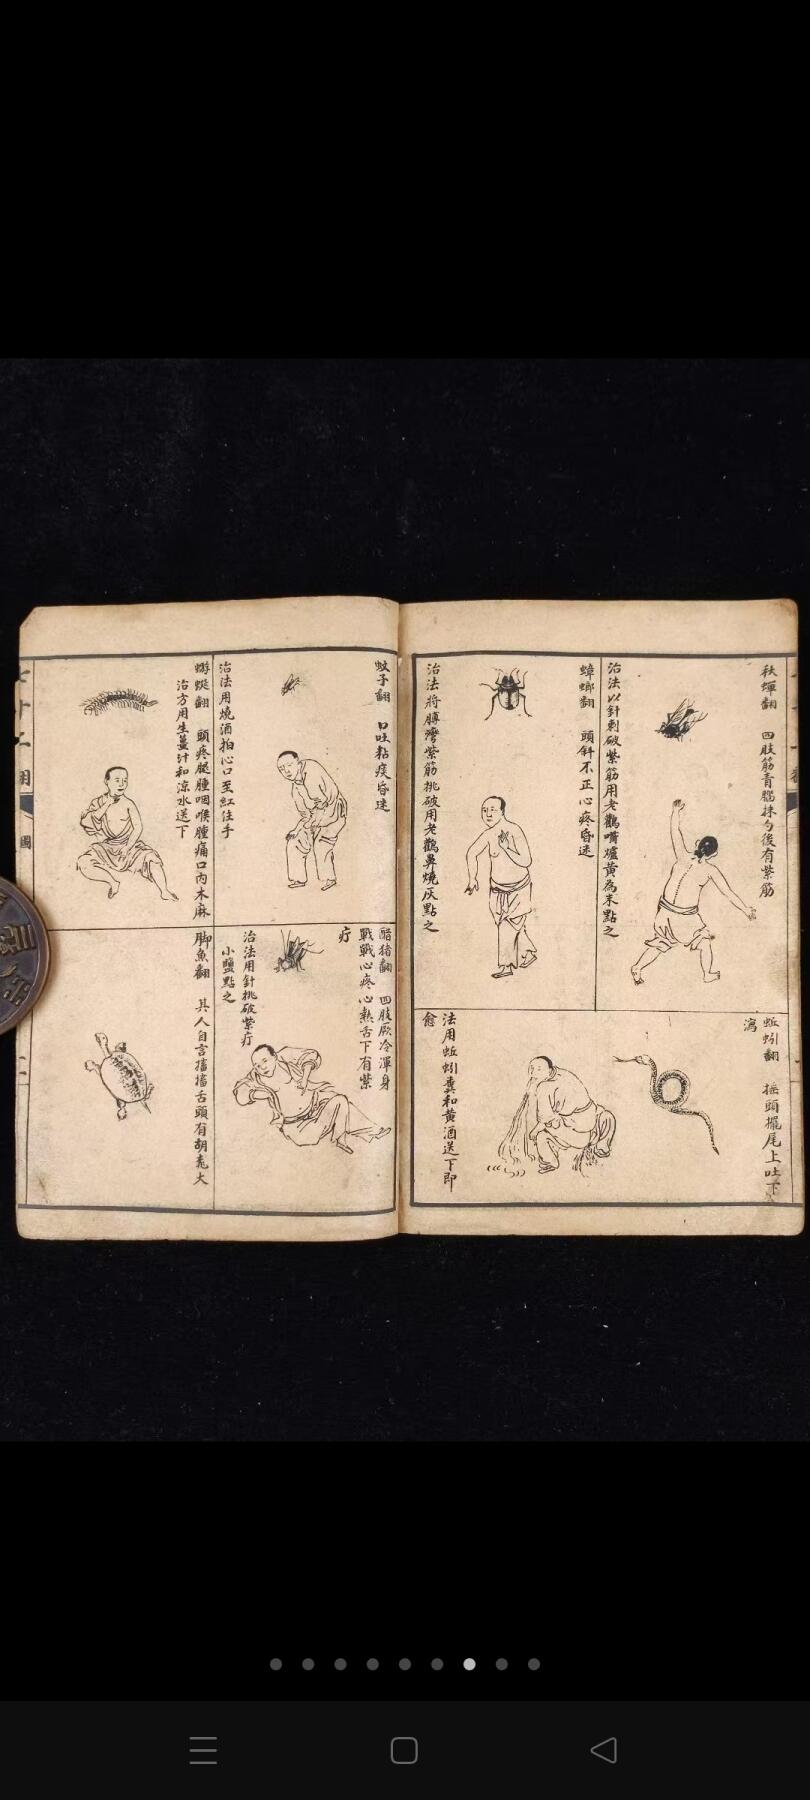 秋蟬翻　四肢筋青腦抹勺後有紫筋
治法以針刺破紫筋用老鸛嘴爐黃為末點之
蟑螂翻　頭斜不正心疼昏迷
治法將膊灣紫筋挑破用老鸛鼻燒灰點之
蚯蚓翻　搖頭擺尾上吐下
瀉
法用蚯蚓糞和黃酒送下即
愈
蚊子翻　口吐黏痰昏迷
治法用燒酒拍心口至紅住手
蝣蜒翻　頭疼腿腫咽喉腫痛口內木麻
治方用生薑汁和涼水送下
醋猪翻　四肢厥冷渾身
戰戰心疼心熱舌下有紫
疔
治法用針挑破紫疔
小鹽點之
脚魚翻　其人自言擂擂舌頭有胡亂大
七十二翻
圖